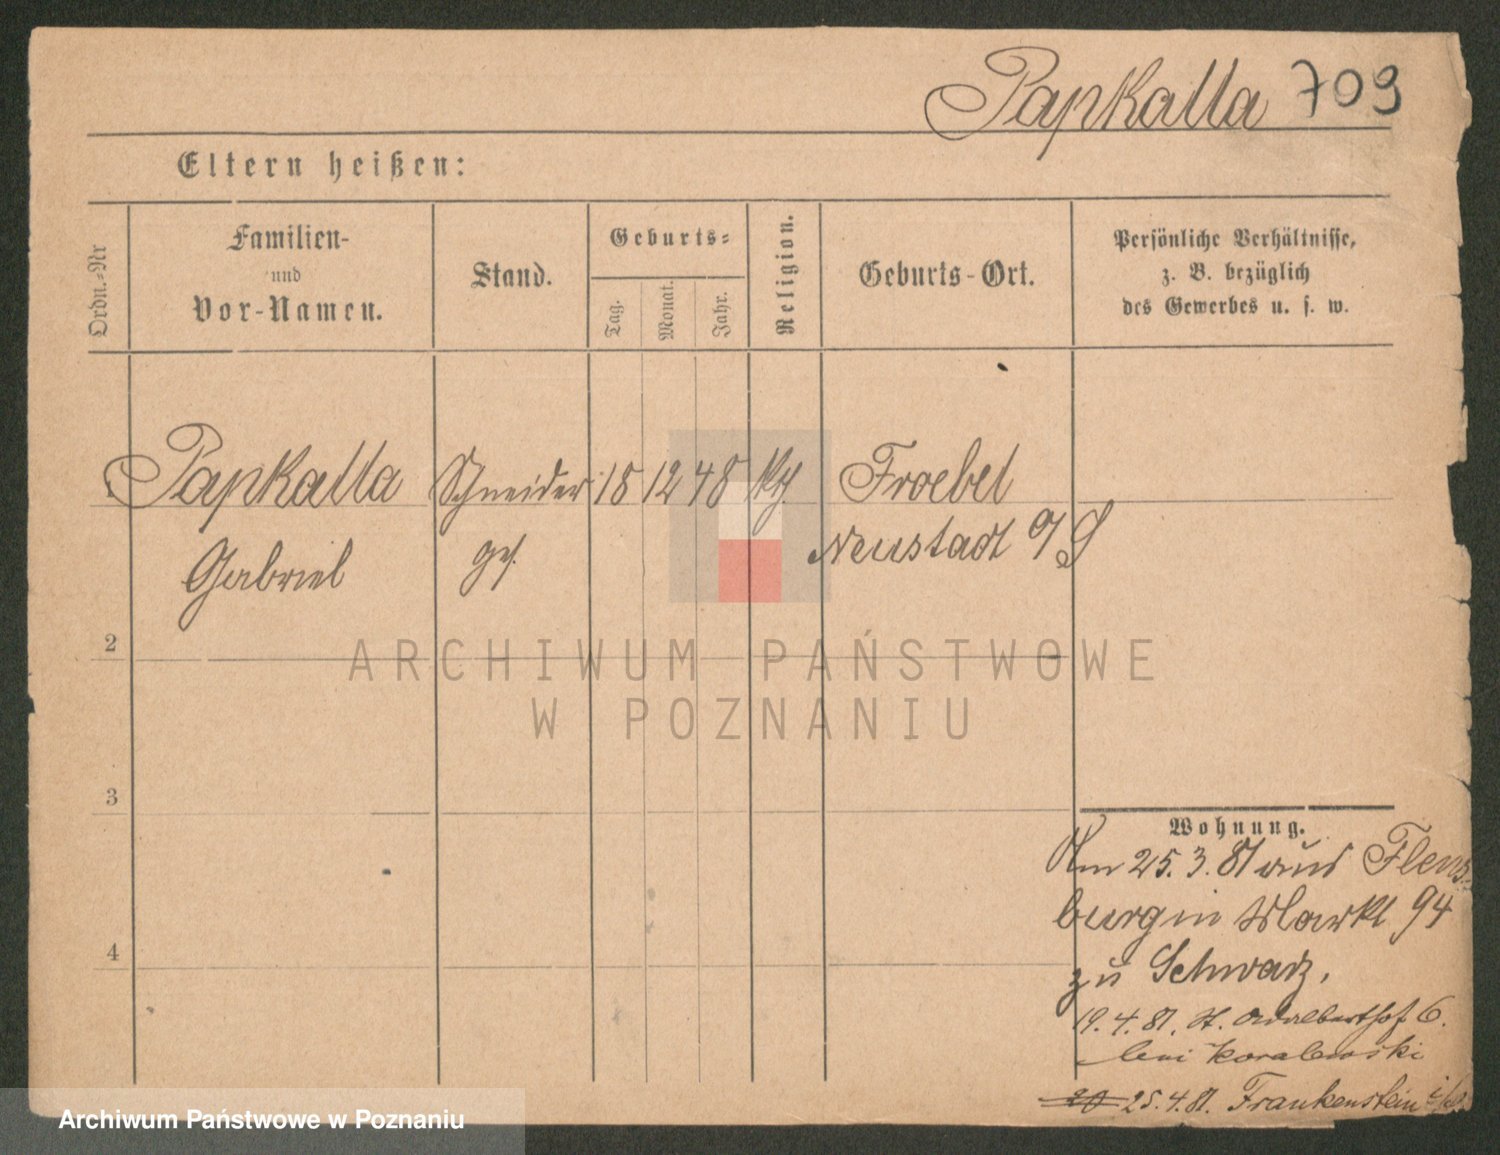 Papkalla 709
Eltern heißen:
Ordn.-Nr
Familien-
und
Vor-Namen.
Stand.
Geburts-
Tag.
Monat.
Jahr.
Religion.
Geburts-Ort.
Persönliche Verhältnisse,
z. B. bezüglich
des Gewerbes u. s. w.
Papkalla Schneider 18 12 48 Froebel
Gabriel ges. Neustadt O/S
2
3
4
Wohnung.
Am 25.3.81 aus Flens-
burg in Markt 94
zu Schwarz,
19.4.81. St. Adalberthof 6.
bei Koralewski
20 25.4.81. Frankenstein
ARCHIWUM PAŃSTWOWE
W POZNANIU
Archiwum Państwowe w Poznaniu